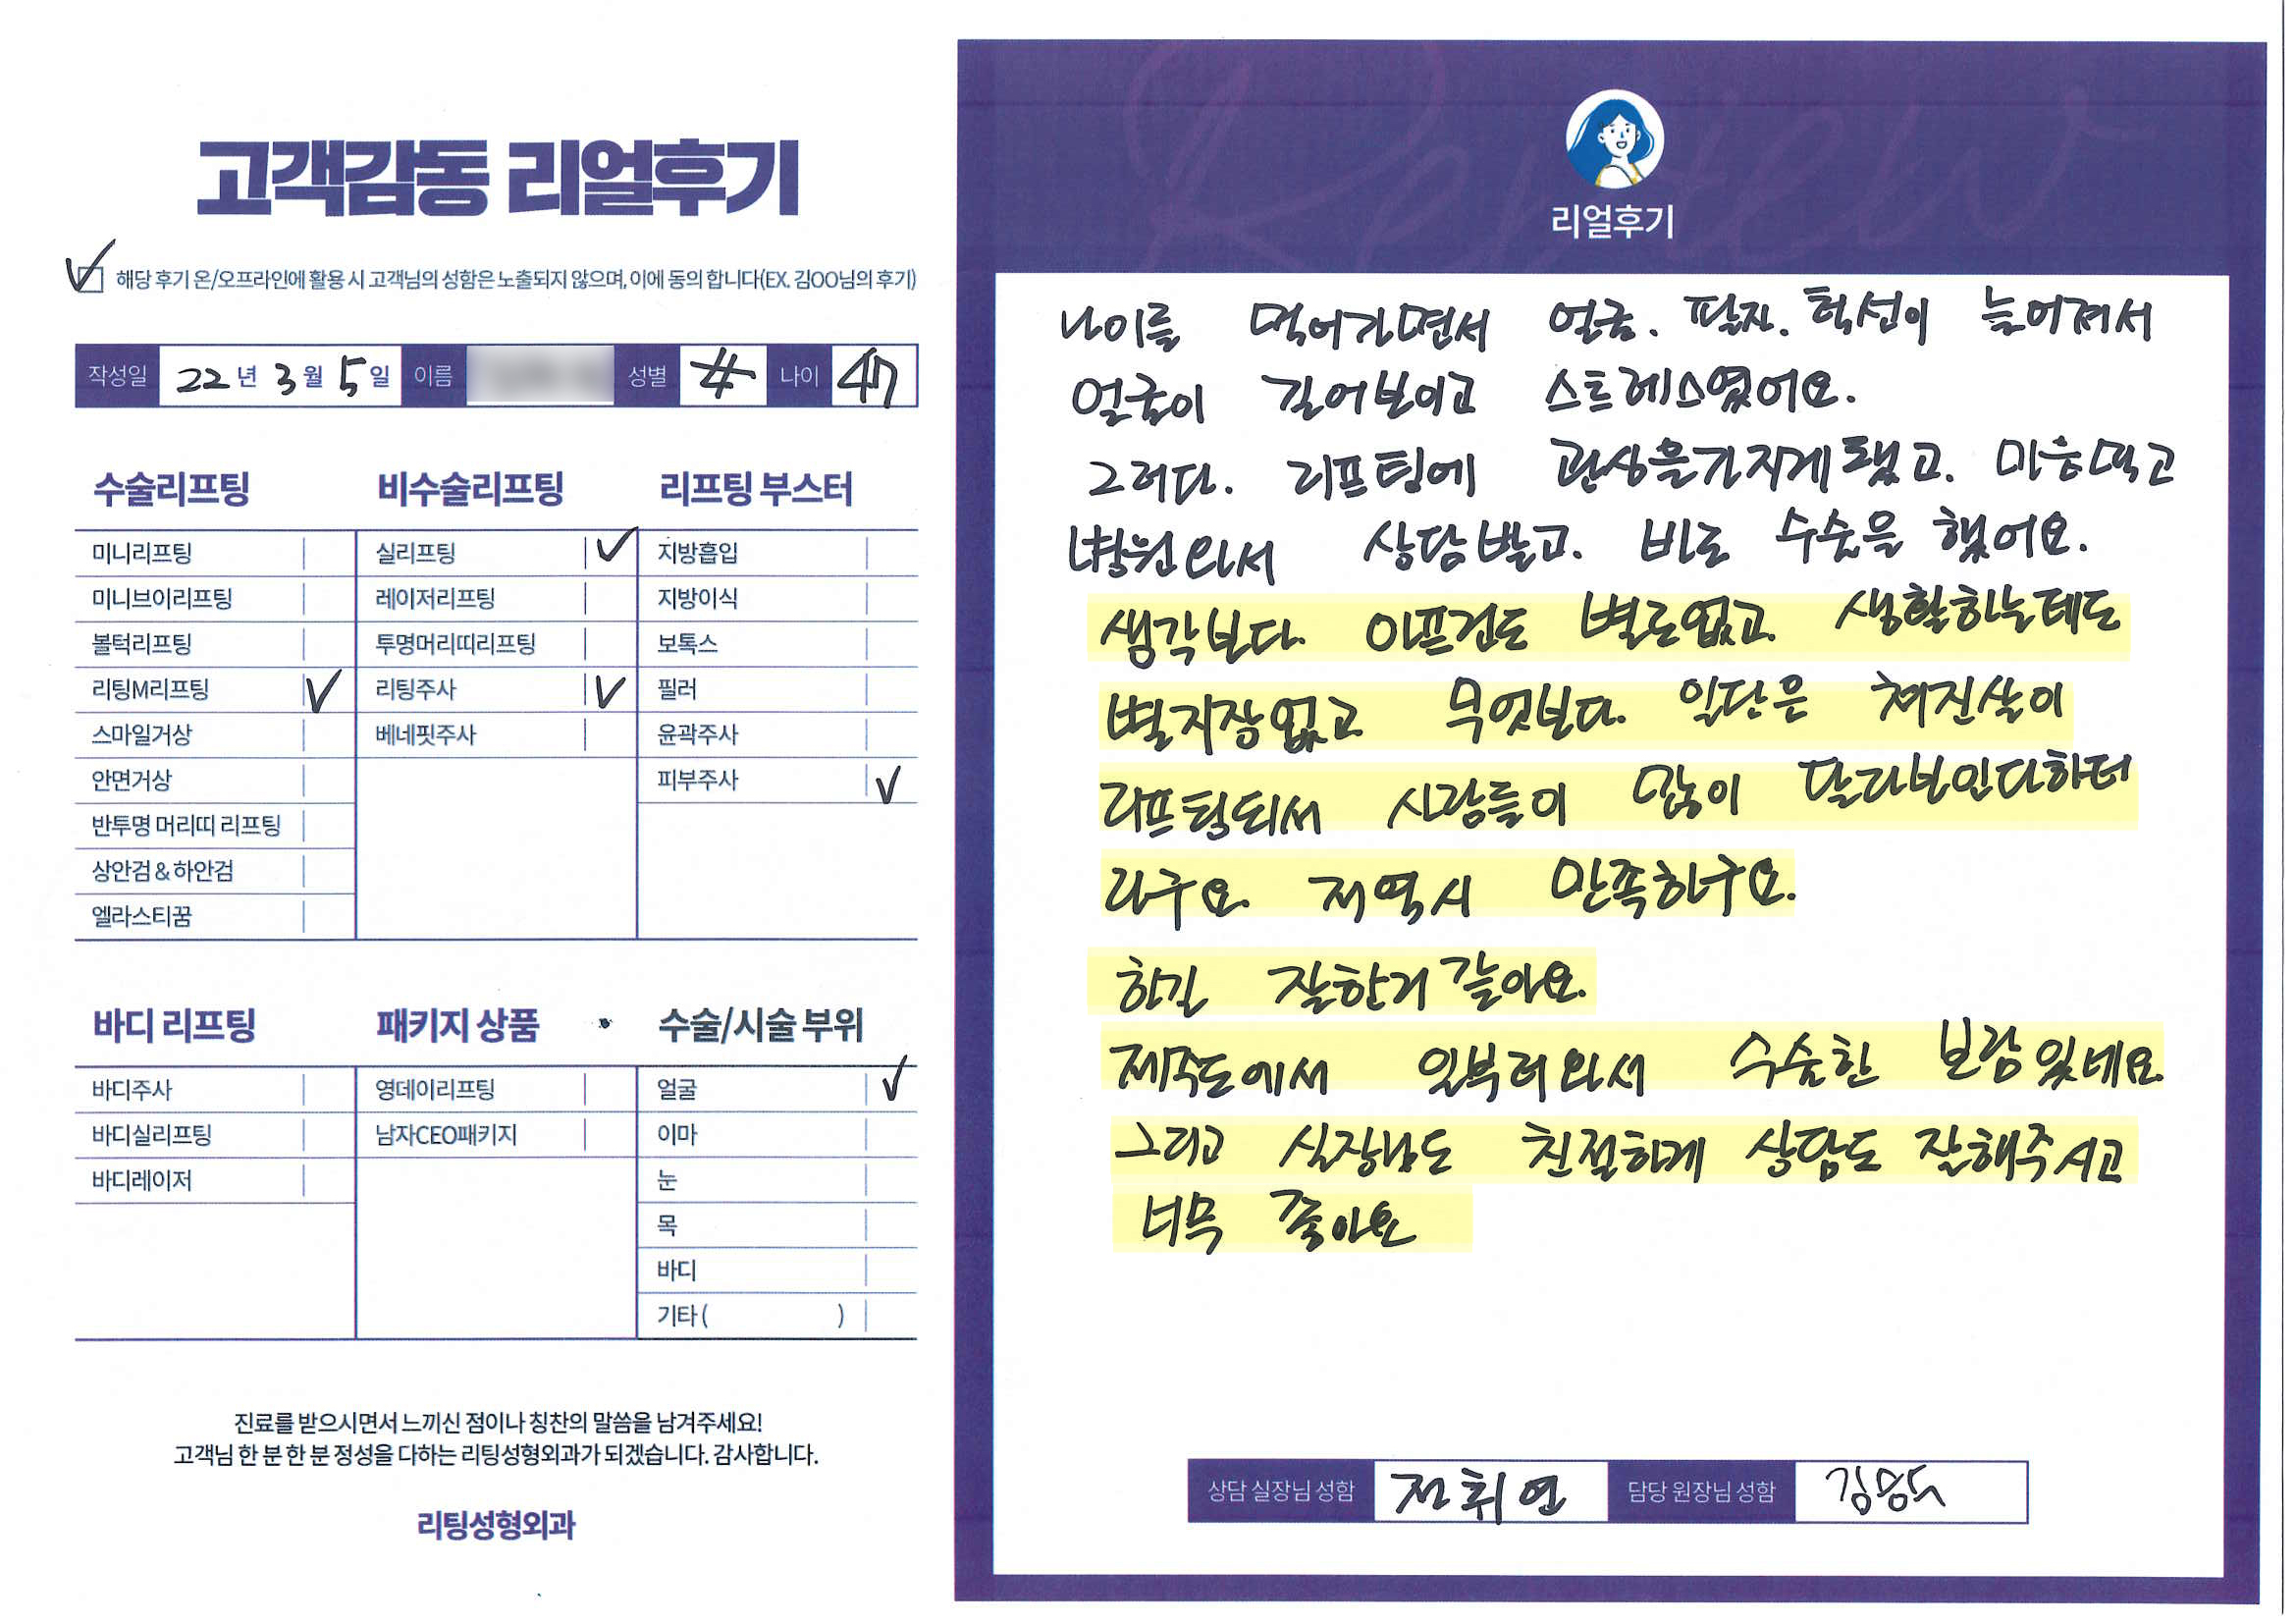 고객감동 리얼후기
해당 후기 온/오프라인에 활용 시 고객님의 성함은 노출되지 않으며, 이에 동의 합니다(EX. 김OO님의 후기)
작성일 22년 3월 5일 이름 성별 나이 47
수술리프팅
미니리프팅
미니브이리프팅
볼턱리프팅
리팅M리프팅
스마일거상
안면거상
반투명 머리띠 리프팅
상안검 & 하안검
엘라스티꿈
비수술리프팅
실리프팅
레이저리프팅
투명머리띠리프팅
리팅주사
베네핏주사
리프팅 부스터
지방흡입
지방이식
보톡스
필러
윤곽주사
피부주사
바디 리프팅
바디주사
바디실리프팅
바디레이저
패키지 상품
영데이리프팅
남자CEO패키지
수술/시술 부위
얼굴
이마
눈
목
바디
기타 ( )
진료를 받으시면서 느끼신 점이나 칭찬의 말씀을 남겨주세요!
고객님 한 분 한 분 정성을 다하는 리팅성형외과가 되겠습니다. 감사합니다.
리팅성형외과
Review
리얼후기
나이를 먹어가면서 얼굴. 팔자. 턱선이 늘어져서
얼굴이 길어보이고 스트레스였어요.
그러다. 리프팅에 관심을가지게됐고. 마음먹고
병원와서 상담받고. 바로 수술을 했어요.
생각보다. 아프건도 별로없고. 생활하는데도
별지장없고 무엇보다. 일단은 쳐진살이
리프팅되서 사람들이 많이 달라보인다하더
라구요. 저역시 만족하구요.
하길 잘한거 같아요.
제주도에서 일부러와서 수술한 보람있네요.
그리고 실장님도 친절하게 상담도 잘해주시고
너무 좋아요
상담 실장님 성함 전휘연 담당 원장님 성함